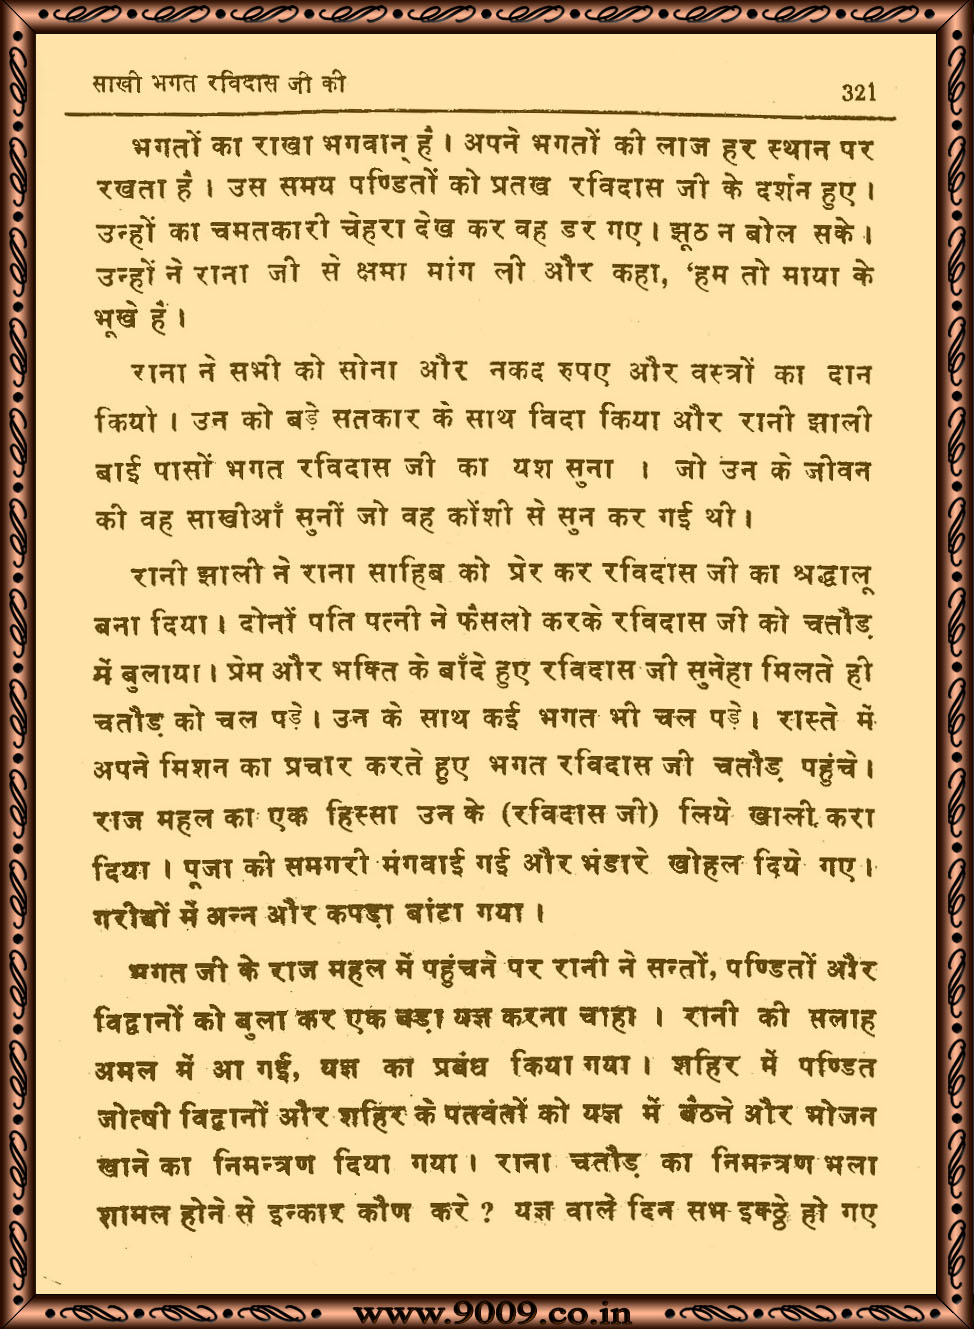 साखी भगत रविदास जी की
321
भगतों का राखा भगवान् हैं । अपने भगतों की लाज हर स्थान पर
रखता हैं । उस समय पण्डितों को प्रतख रविदास जी के दर्शन हुए ।
उन्हों का चमतकारी चेहरा देख कर वह डर गए । झूठ न बोल सके ।
उन्हों ने राना जी से क्षमा मांग ली और कहा, ‘हम तो माया के
भूखे हैं ।
राना ने सभी को सोना और नकद रुपए और वस्त्रों का दान
कियो । उन को बड़े सतकार के साथ विदा किया और रानी झाली
बाई पासों भगत रविदास जी का यश सुना । जो उन के जीवन
की वह साखीआँ सुनीं जो वह कोंशी से सुन कर गई थी ।
रानी झाली ने राना साहिब को प्रेर कर रविदास जी का श्रद्धालू
बना दिया । दोनों पति पत्नी ने फैसलो करके रविदास जी को चतौड़
में बुलाया । प्रेम और भक्ति के बाँदे हुए रविदास जी सुनेहा मिलते ही
चतौड़ को चल पड़े । उन के साथ कई भगत भी चल पड़े । रास्ते में
अपने मिशन का प्रचार करते हुए भगत रविदास जी चतौड़ पहुंचे ।
राज महल का एक हिस्सा उन के (रविदास जी) लिये खाली करा
दिया । पूजा की समगरी मंगवाई गई और भंडारे खोहल दिये गए ।
गरीबों में अन्न और कपड़ा बांटा गया ।
भगत जी के राज महल में पहुंचने पर रानी ने सन्तों, पण्डितों और
विद्वानों को बुला कर एक बड़ा यज्ञ करना चाहा । रानी की सलाह
अमल में आ गई, यज्ञ का प्रबंध किया गया । शहिर में पण्डित
जोत्षी विद्वानों और शहिर के पतवंतों को यज्ञ में बैठने और भोजन
खाने का निमन्त्रण दिया गया । राना चतौड़ का निमन्त्रण भला
शामल होने से इन्कार कौण करे ? यज्ञ वाले दिन सभ इक्ठ्ठे हो गए
www.9009.co.in